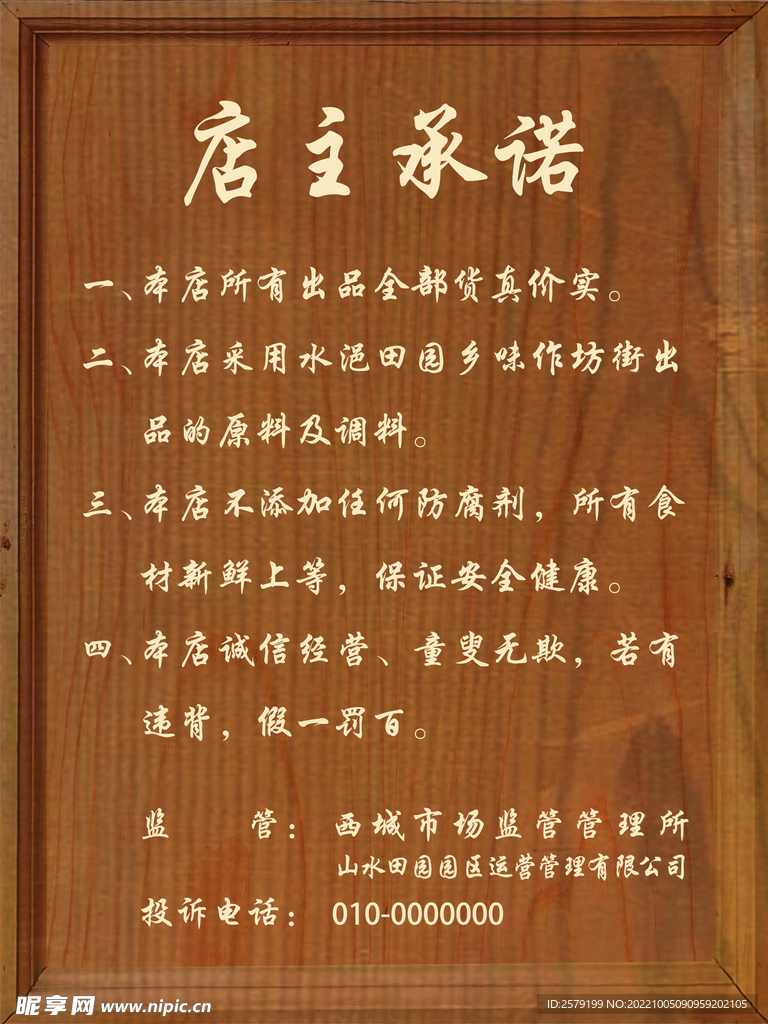 店主承诺
一、本店所有出品全部货真价实。
二、本店采用水浥田园乡味作坊街出
品的原料及调料。
三、本店不添加任何防腐剂，所有食
材新鲜上等，保证安全健康。
四、本店诚信经营、童叟无欺，若有
违背，假一罚百。
监 管： 西城市场监管管理所
山水田园园区运营管理有限公司
投诉电话： 010-0000000
昵享网 www.nipic.cn
ID:2579199 NO:20221005090959202105